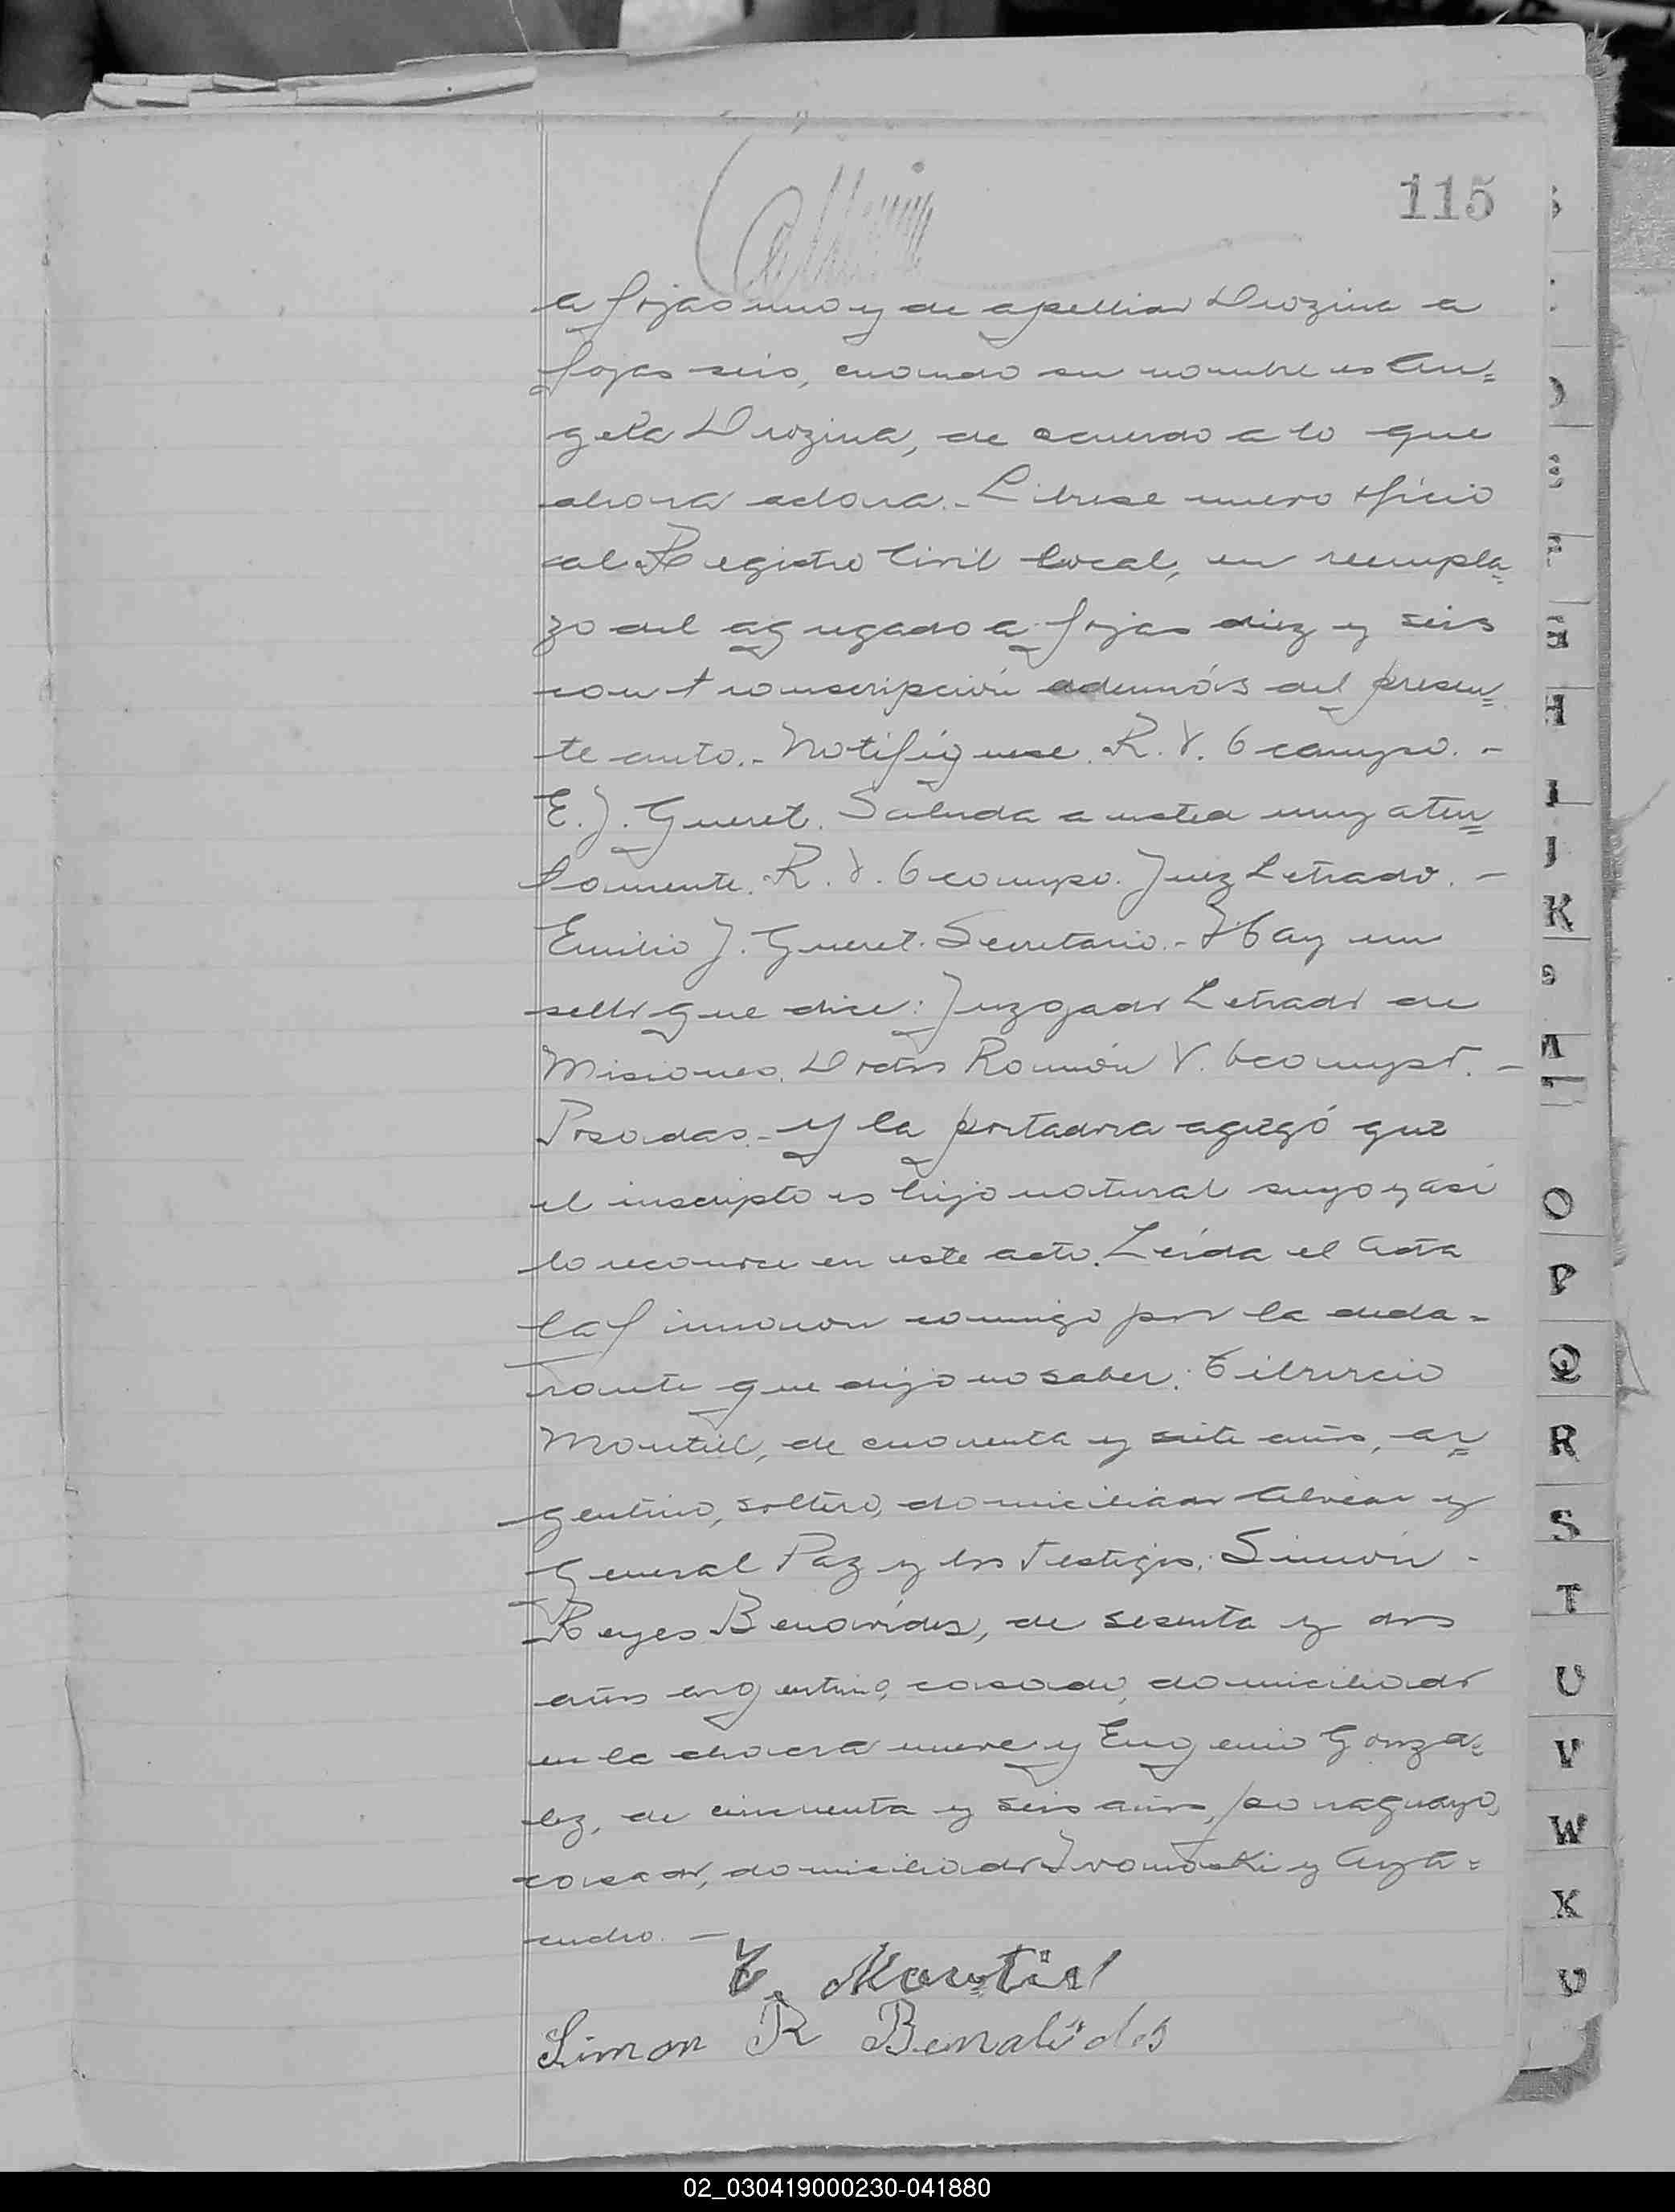 115
a fojas uno y de apellido Drozina a
fojas seis, cuando su nombre es An=
gela Drozina, de acuerdo a lo que
ahora aclara.- Librese nuevo oficio
al Registro Civil local, en reempla=
zo del agregado a fojas diez y seis
con transcripción además del presen=
te auto.- Notifíquese. R. V. Ocampo. -
E. J. Gueret. Saluda a usted muy aten=
tamente. R. V. Ocampo. Juez Letrado. -
Emilio J. Gueret. Secretario.- Hay un
sello que dice: Juzgado Letrado de
Misiones. Doctor Román V. Ocampo. -
Posadas.- Y la portadora agregó que
el inscripto es hijo natural suyo y asi
lo reconoce en este acto. Leída el Acta
la firmaron conmigo por la decla=
rante que dijo no saber: Tiburcio
Montiel, de cuarenta y siete años, ar=
gentino, soltero, domiciliado Alvear y
General Paz y los testigos: Simón -
Reyes Benavídes, de sesenta y dos
años argentino, casado, domiciliado
en la chacra nueve y Eugenio Gonza=
lez, de cincuenta y seis años, paraguayo,
casado, domiciliado Ivanoski y Aya=
cucho. -
T. Montiel
Simon R Benalides
H
I
J
K
O
P
Q
R
S
T
U
V
W
X
02_030419000230-041880